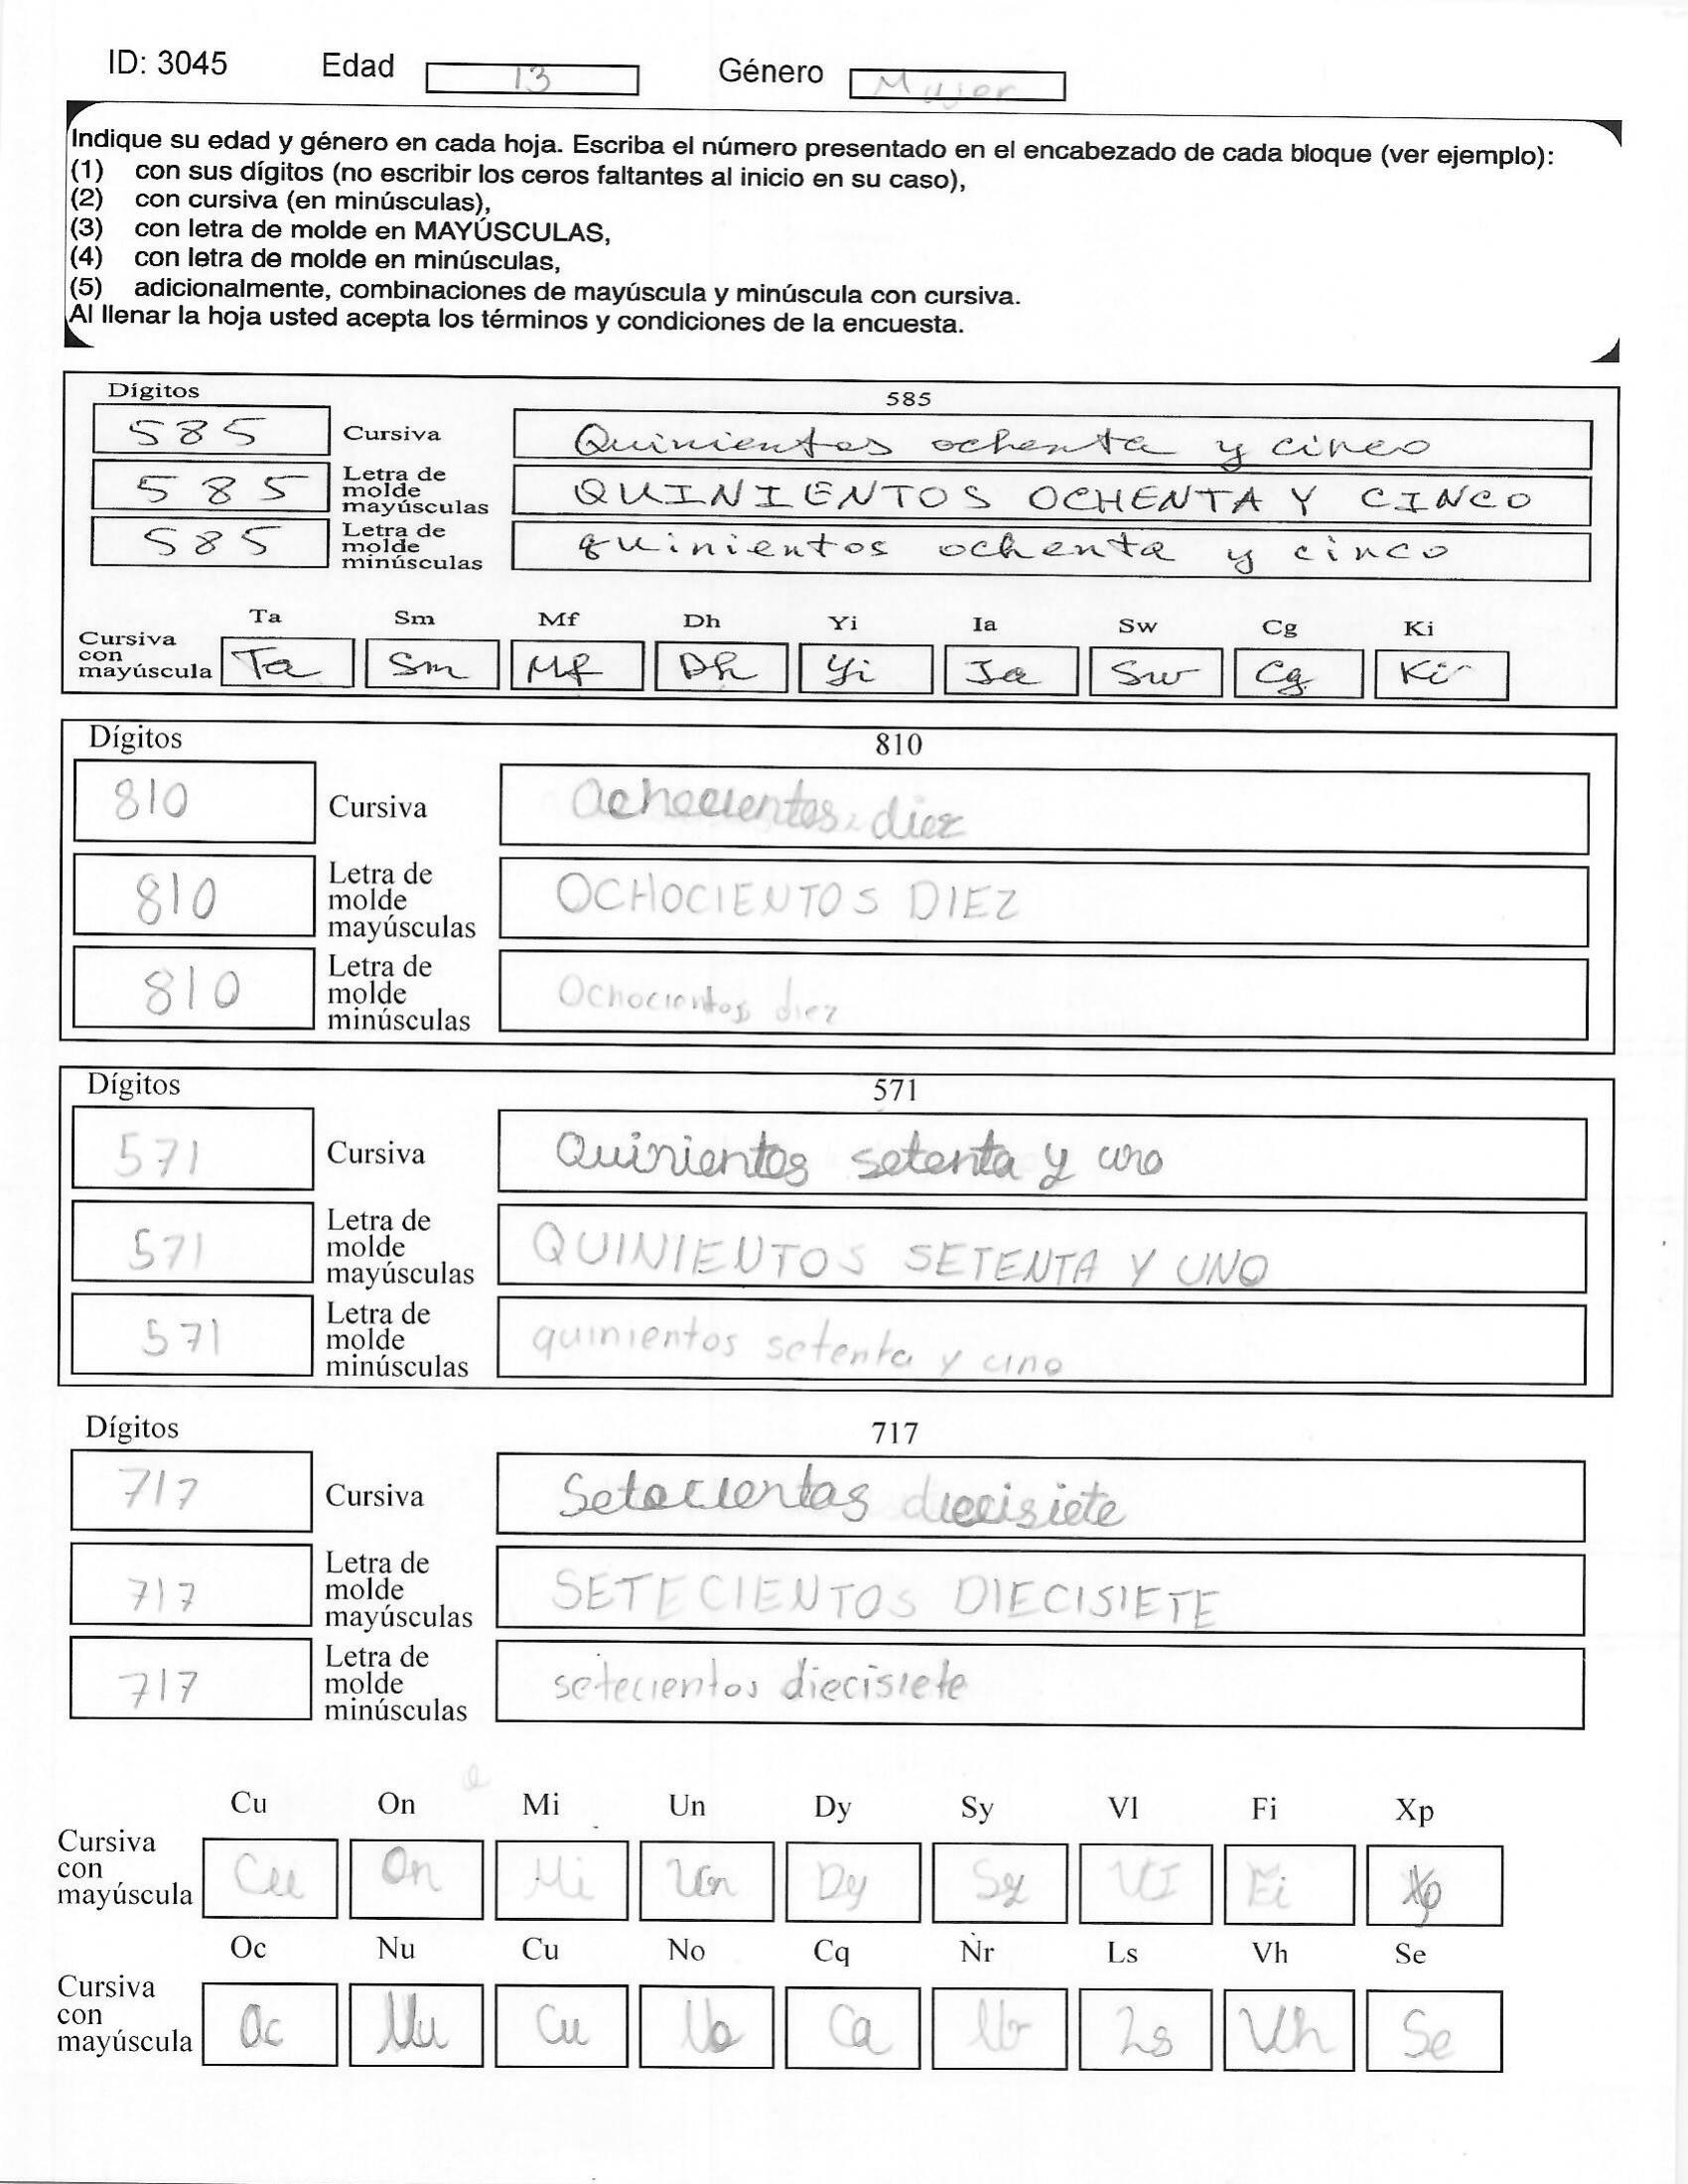 ID: 3045 Edad 13 Género Mujer
Indique su edad y género en cada hoja. Escriba el número presentado en el encabezado de cada bloque (ver ejemplo):
(1) con sus dígitos (no escribir los ceros faltantes al inicio en su caso),
(2) con cursiva (en minúsculas),
(3) con letra de molde en MAYÚSCULAS,
(4) con letra de molde en minúsculas,
(5) adicionalmente, combinaciones de mayúscula y minúscula con cursiva.
Al llenar la hoja usted acepta los términos y condiciones de la encuesta.
Dígitos 585
585 Cursiva Quinientos ochenta y cinco
585 Letra de molde mayúsculas QUINIENTOS OCHENTA Y CINCO
585 Letra de molde minúsculas quinientos ochenta y cinco
Ta Sm Mf Dh Yi Ia Sw Cg Ki
Cursiva con mayúscula Ta Sm Mf Dh Yi Ia Sw Cg Ki
Dígitos 810
810 Cursiva Ochocientos diez
810 Letra de molde mayúsculas OCHOCIENTOS DIEZ
810 Letra de molde minúsculas Ochocientos diez
Dígitos 571
571 Cursiva Quinientos setenta y uno
571 Letra de molde mayúsculas QUINIENTOS SETENTA Y UNO
571 Letra de molde minúsculas quinientos setenta y uno
Dígitos 717
717 Cursiva Setecientos diecisiete
717 Letra de molde mayúsculas SETECIENTOS DIECISIETE
717 Letra de molde minúsculas setecientos diecisiete
Cu On Mi Un Dy Sy Vl Fi Xp
Cursiva con mayúscula Cu On Mi Un Dy Sy VI Fi Xp
Oc Nu Cu No Cq Nr Ls Vh Se
Cursiva con mayúscula Oc Nu Cu No Ca Nr Ls Vh Se